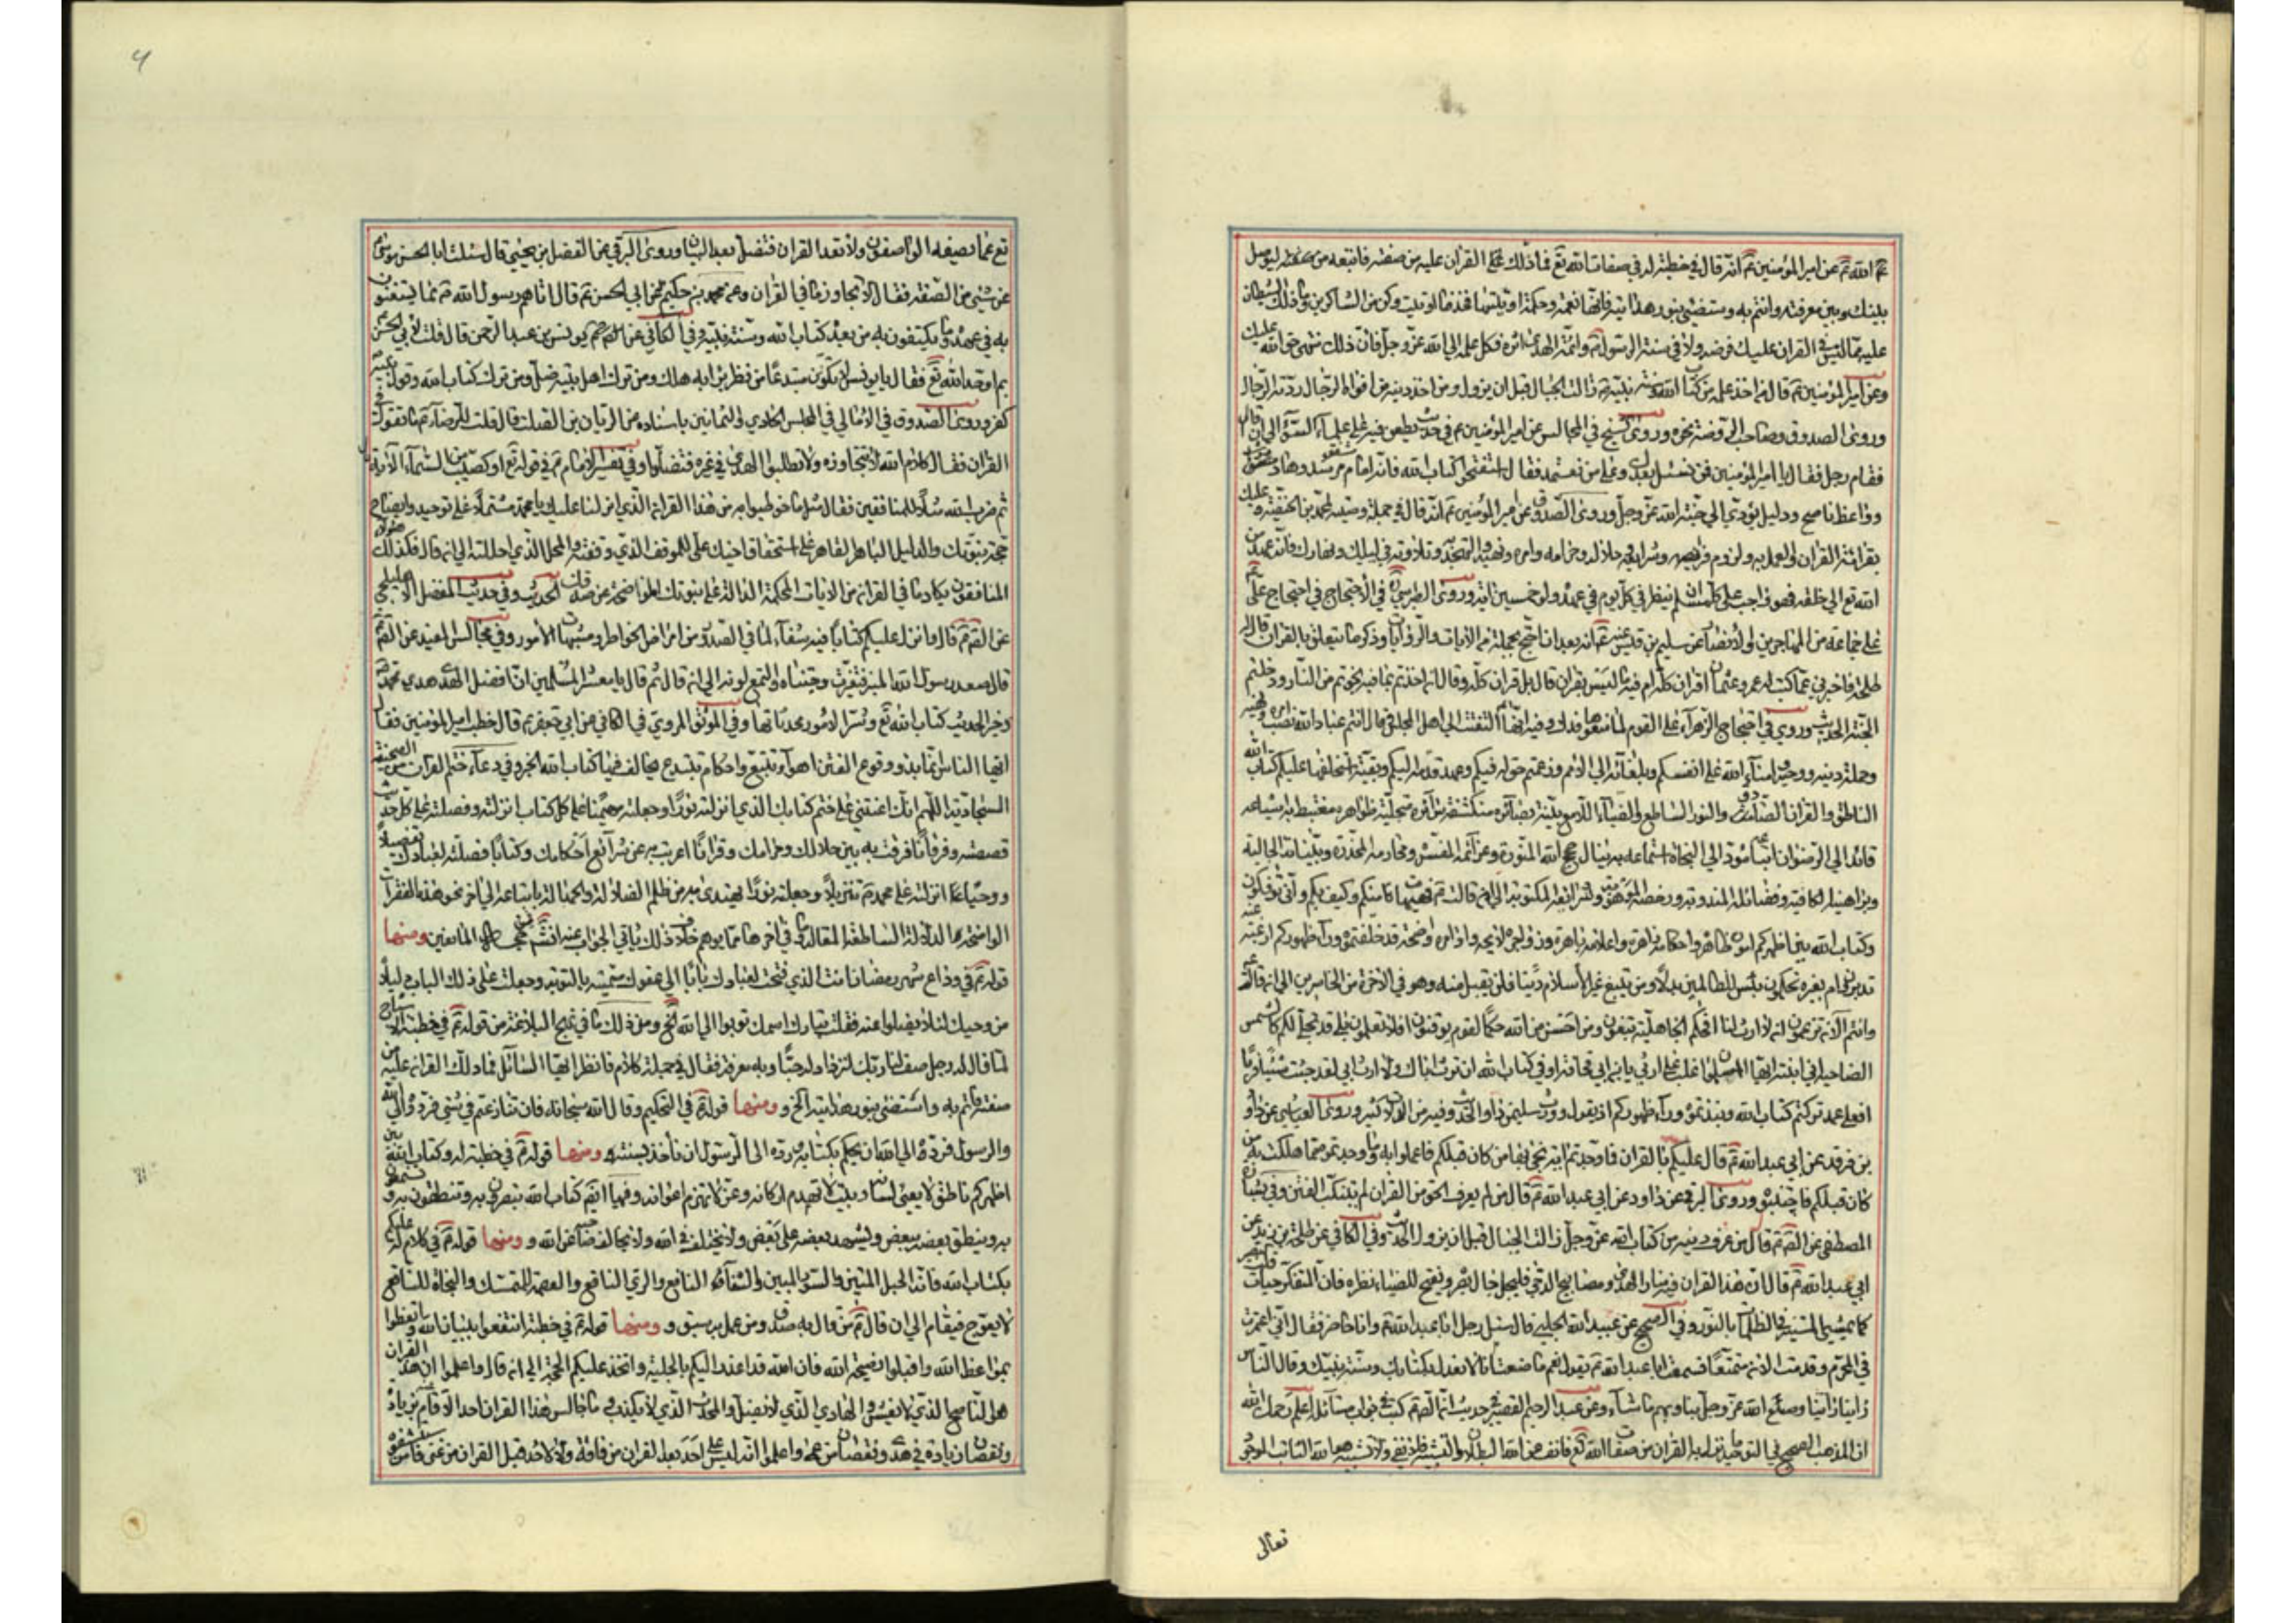 عم الله تم عن امير المؤمنين تم انه قال في خطبة له في صفات الله تع فما ذلك علي القران عليه من صفته فاتبعه ليوصل
بينك وبين معرفته وائتم به واستضئ بنور هدايته فانها نعمة وحكمة اوتيتها فخذ ما اوتيت وكن من الشاكرين وما ذلك الشيطان
عليه مما ليس في القران عليك فرضه ولا في سنة الرسول وائمة الهدى اثره فكل علمه الي الله عز وجل فان ذلك منتهى حق الله عليك
وعن امير المؤمنين تم قال من اخذ علمه من كتاب الله وسنة نبيه زالت الجبال قبل ان يزول ومن اخذ دينه من افواه الرجال ردته الرجال
وروى الصدوق وصاحب الروضة نحوه وروى الشيخ في المجالس عن امير المؤمنين عم في حديث يطعن فيه على علماء السوء الي ان قال
فقام رجل فقال يا امير المؤمنين فمن نسئل بعدك وعلى من نعتمد فقال استفتحوا كتاب الله فانه امام مرشد وهاد
وواعظ ناصح ودليل يؤدي الي جنة الله عز وجل وروى الصدوق عن امير المؤمنين تم انه قال في جملة وصيته لمحمد بن الحنفية وعليك
بقرائة القران والعمل به ولزوم فرائضه وشرايعه وحلاله وحرامه وامره ونهيه والتهجد به وتلاوته في ليلك ونهارك فانه عهد من
الله تع الي خلقه فهو واجب على كل مسلم ان ينظر في كل يوم في عهده ولو خمسين اية وروى الطبرسي في الاحتجاج في احتجاج علي
على جماعة من المهاجرين والانصار عن سليم بن قيس عنه تم انه بعد ان احتج بجملة من الايات والروايات وذكر ما يتعلق بالقران قال له
طلحة فاخبرني عما كتب عمر وعثمان اقران كله ام فيه ما ليس بقران قال بل قران كله وقال ان اخذتم بما فيه نجوتم من النار ودخلتم
الجنة الحديث وروي في احتجاج الزهراء على القوم لما منعوها فدك وفيه انها التفتت الي اهل المجلس قالت انتم عباد الله نصب امره ونهيه
وحملة دينه ووحيه وامناء الله على انفسكم وبلغائه الي الامم وزعمتم حق له فيكم وعهد قدمه اليكم وبقية استخلفها عليكم كتاب الله
الناطق والقران الصادق والنور الساطع والضياء اللامع بينة بصائره منكشفة سرائره متجلية ظواهره مغتبط به اشياعه
قائد الي الرضوان اتباعه مؤد الي النجاة استماعه به تنال حجج الله المنورة وعزائمه المفسرة ومحارمه المحذرة وبيناته الجالية
وبراهينه الكافية وفضائله المندوبة ورخصه الموهوبة وشرائعه المكتوبة الي ان قالت تم فهيهات منكم وكيف بكم واني تؤفكون
وكتاب الله بين اظهركم اموره ظاهرة واحكامه زاهرة واعلامه باهرة وزواجره لايحة واوامره واضحة قد خلفتموه وراء ظهوركم ارغبة عنه
تدبرون ام بغيره تحكمون بئس للظالمين بدلا ومن يبتغ غير الاسلام دينا فلن يقبل منه وهو في الاخرة من الخاسرين الي ان قالت
وانتم الان تزعمون ان لا ارث لنا افحكم الجاهلية تبغون ومن احسن من الله حكما لقوم يوقنون افلا تعلمون بلى قد تجلى لكم كالشمس
الضاحية اني ابنته ايها المسلمون ااغلب على ارثي يابن ابي قحافة افي كتاب الله ان ترث اباك ولا ارث ابي لقد جئت شيئا فريا
افعلى عمد تركتم كتاب الله ونبذتموه وراء ظهوركم اذ يقول وورث سليمن داود الحديث وفيه من الدلالة كثير وروى العياشي عن داود
بن فرقد عن ابي عبد الله تم قال عليكم بالقران فما وجدتم اية نجى بها من كان قبلكم فاعملوا به وما وجدتموه مما هلك به من
كان قبلكم فاجتنبوه وروى البرقي عن داود عن ابي عبد الله تم قال من لم يعرف الحق من القران لم يتنكب الفتن وفي بشارة
المصطفى عن القم تم قال من عرف دينه من كتاب الله عز وجل زالت الجبال قبل ان يزول الحديث وفي الكافي عن طلحة بن زيد عن
ابي عبد الله تم قال ان هذا القران فيه منار الهدى ومصابيح الدجى فليجل جال بصره ويفتح للضياء نظره فان التفكر حيات قلب البصير
كما يمشي المستنير في الظلمات بالنور وفي الصحيح عن عبيد الله الحلبي قال سئل رجل ابا عبد الله تم وانا حاضر فقال اني اعتمرت
في المحرم وقدمت الان متمتعا فسمعت ابا عبد الله تم يقول نعم ما صنعت انا لا نعدل بكتابك وسنة نبيك وقال الناس
راينا راينا وصنع الله عز وجل بنا وبهم ما شاء وعن عبد الرحيم القصير في حديث انه القم تم كتب في جواب مسائله اعلم رحمك الله
ان المذهب الصحيح في التوحيد ما نزل به القران من صفات الله تع فانف عن الله البطلان والتشبيه فلا نفي ولا تشبيه هو الله الثابت الموجود
تعالى
4
تع عما يصفه الواصفون ولا تعد القران فتضل بعد البيان وروى البرقي عن الفضل بن يحيى قال سئلت ابا الحسن موسى
عن شئ من الصفة فقال لا تجاوز ما في القران وعن محمد بن حكيم عن ابي الحسن تم قال اتاهم رسول الله ص بما يستغنون
به في عهده وما يكتفون به من بعده كتاب الله وسنة نبيه وفي الكافي عن يونس بن عبد الرحمن قال قلت لابي الحسن
بم اوحد الله تع فقال يا يونس لا تكونن مبتدعا من نظر برايه هلك ومن ترك اهل بيت نبيه ضل ومن ترك كتاب الله وقول نبيه
كفر وروى الصدوق في الامالي في المجلس الحادي والثمانين باسناده عن الريان بن الصلت قال قلت للرضا تم ما تقول في
القران فقال كلام الله لا تتجاوزه ولا تطلبوا الهدى في غيره فتضلوا وفي تفسير الامام تم في قوله تع او كصيب من السماء الاية
ثم ضرب الله مثلا للمنافقين فقال مثل ما خوطبوا به من هذا القران الذي انزلنا عليك يا محمد مشتملا على توحيد وايضاح
حجة نبوتك والدليل الباهر القاهر على استحقاق اخيك علي للموقف الذي وقفته والمحل الذي احللته الي ان قال فكذلك هؤلاء
المنافقون يكاد ما في القران من الايات المحكمة الدالة على نبوتك الموضحة عن صدقك الحديث وفي حديث المفضل الاهليلجي
عن القم تم قال وانزل عليكم كتابا فيه شفاء لما في الصدور من امراض الخواطر ومشتبهات الامور وفي مجالس المفيد عن القم تم
قال صعد رسول الله المنبر فتغيرت وجنتاه والتمع لونه الي ان قال ثم قال يا معشر المسلمين ان افضل الهدى هدي محمد
وخير الحديث كتاب الله تع وشر الامور محدثاتها وفي الموثق المروي في الكافي عن ابي جعفر تم قال خطب امير المؤمنين فقال
ايها الناس انما بدو وقوع الفتن اهواء تتبع واحكام تبتدع يخالف فيها كتاب الله الخبر وفي دعاء ختم القران من الصحيفة
السجادية اللهم انك اعنتني على ختم كتابك الذي انزلته نورا وجعلته مهيمنا على كل كتاب انزلته وفضلته على كل حديث
قصصته وفرقانا فرقت به بين حلالك وحرامك وقرانا اعربت به عن شرائع احكامك وكتابا فصلته لعبادك تفصيلا
ووحيا انزلته على محمد ص تنزيلا وجعلته نورا نهتدي به من ظلم الضلالة والجهالة باتباعه الي اخر نحو هذه الفقرات
الواضحة الدلالة الساطعة المقالة وفي اخرها مما يوهم خلاف ذلك ياتي الجواب عنه انشاء الله المانعين ومنها
قوله تم في وداع شهر رمضان انت الذي فتحت لعبادك بابا الي عفوك سميته بالتوبة وجعلت على ذلك الباب دليلا
من وحيك لئلا يضلوا عنه فقلت تبارك اسمك توبوا الي الله الخ ومن ذلك ما في نهج البلاغة من قوله تم في خطبة الاشباح
لما قال له رجل صف لنا ربك لنزداد له حبا وبه معرفة فقال في جملة كلام فانظر ايها السائل فما دلك القران عليه من
صفته فائتم به واستضئ بنور هدايته الخ ومنها قوله تم في التحكيم وقال الله سبحانه فان تنازعتم في شئ فردوه الي الله
والرسول فرده الي الله ان نحكم بكتابه ورده الي الرسول ان ناخذ بسنته ومنها قوله تم في خطبة له وكتاب الله بين
اظهركم ناطق لا يعيى لسانه وبيت لا تهدم اركانه وعز لا تهزم اعوانه وفيها ايضا كتاب الله تبصرون به وتنطقون به وتسمعون
به وينطق بعضه ببعض ويشهد بعضه على بعض ولا يختلف في الله ولا يخالف بصاحبه عن الله ومنها قوله تم في كلام له وعليكم
بكتاب الله فانه الحبل المتين والنور المبين والشفاء النافع والري الناقع والعصمة للمتمسك والنجاة للمتعلق
لا يعوج فيقام الي ان قال تم من قال به صدق ومن عمل به سبق ومنها قوله تم في خطبة انتفعوا ببيان الله واتعظوا
بمواعظ الله واقبلوا نصيحة الله فان الله قد اعذر اليكم بالجلية واتخذ عليكم الحجة الي ان قال واعلموا ان هذا القران
هو الناصح الذي لا يغش والهادي الذي لا يضل والمحدث الذي لا يكذب وما جالس هذا القران احد الا قام عنه بزيادة
ونقصان زيادة في هدى ونقصان من عمى واعلموا انه ليس على احد بعد القران من فاقة ولا لاحد قبل القران من غنى فاستشفوه